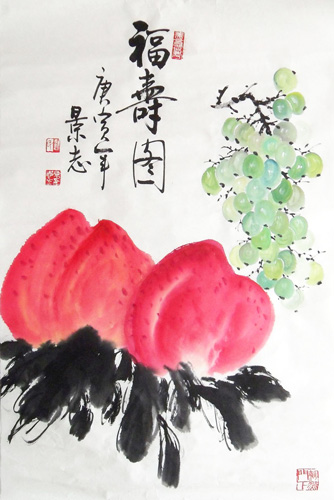 福壽图
庚寅年
景志